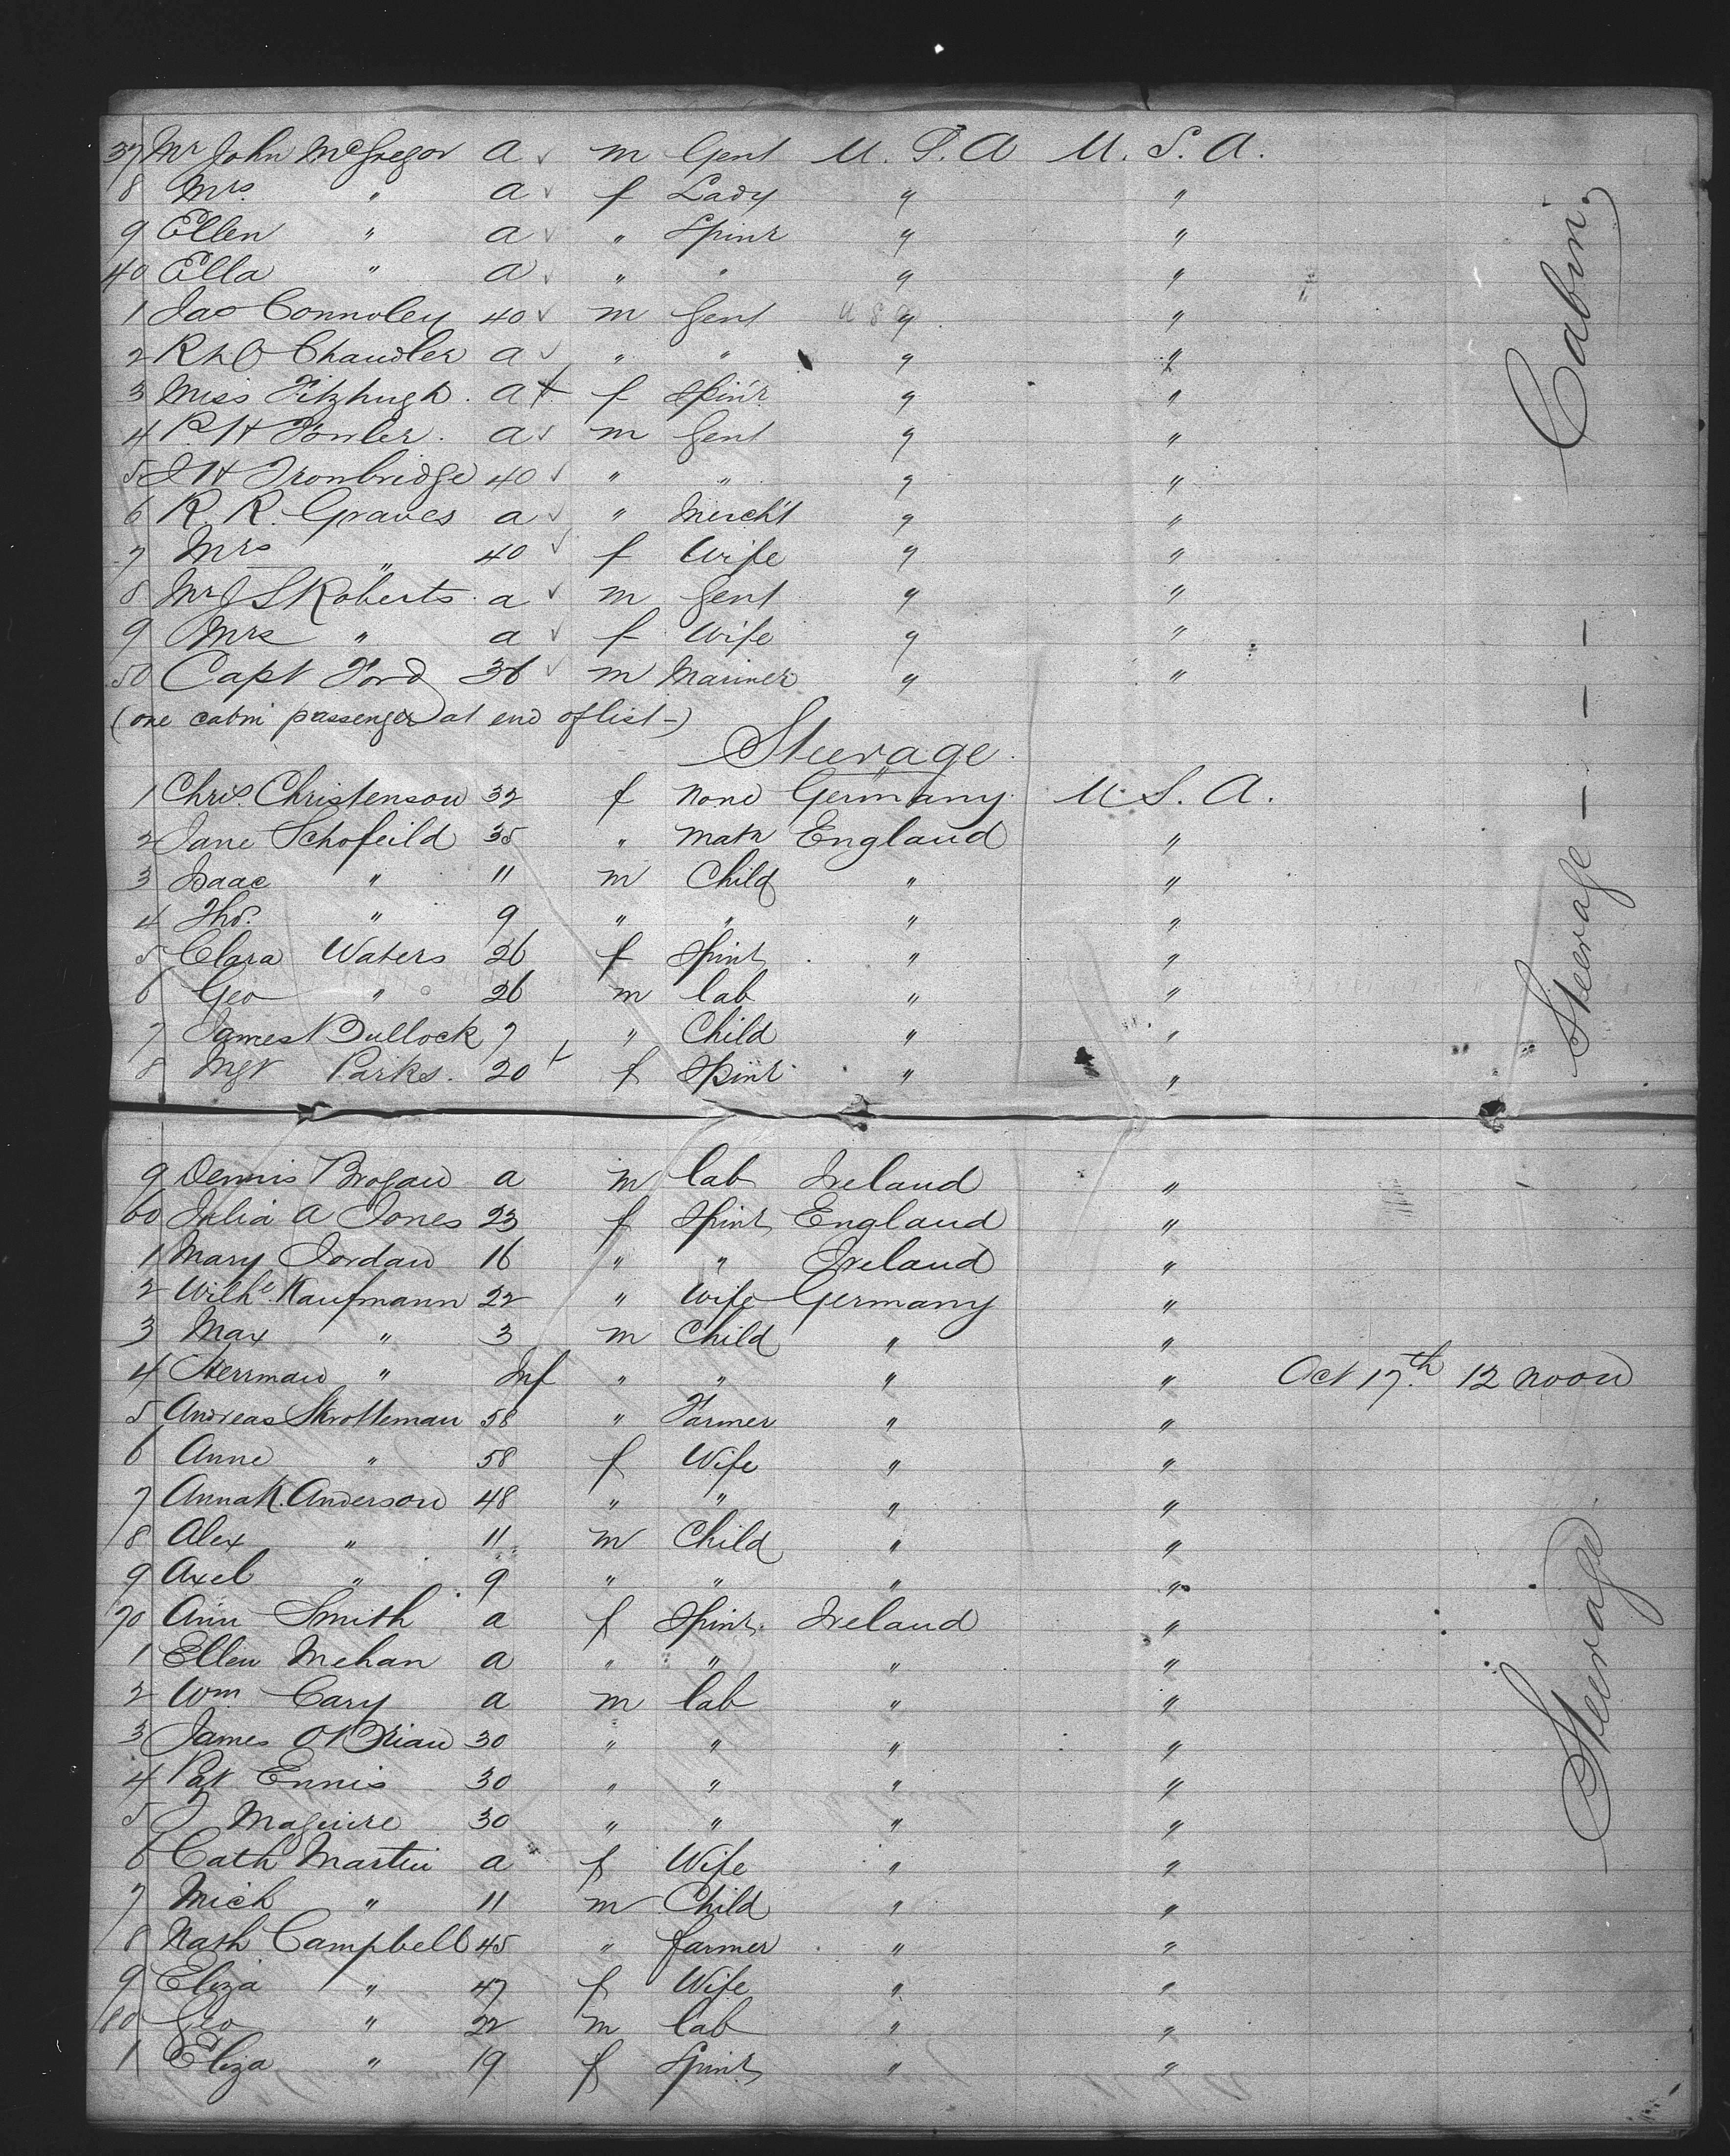 37 Mr John McGregor a ✓ m Gent U.S.A U.S.A.
8 Mrs. " a ✓ f Lady " "
9 Ellen " a ✓ " Spinr " "
40 Ella " a ✓ " " " "
1 Jas Connoley 40 ✓ m Gent " "
2 Chandler a ✓ " " " "
3 Miss Fitzhugh. a + f Spin'r " "
4 R. H Fowler. a ✓ m Gent " "
5 J H Tronbridge 40 ✓ " " " "
6 R. R. Graves a ✓ " Merch't " "
7 Mrs " 40 ✓ f Wife " "
8 Mr J S Roberts. a ✓ m Gent " "
9 Mrs " a ✓ f Wife " "
50 Capt Ford 36 ✓ m Mariner " "
(one cabin passenger at end of list -)
Cabin.
Steerage.
1 Chris. Christenson 32 f None Germany U.S.A.
2 Jane Schofeild 35 " Matn England "
3 Isaac " 11 m Child " "
4 Thos. " 9 " " " "
5 Clara Waters 26 f Spinr " "
6 Geo " 26 m lab " "
7 James Bullock 7 " Child " "
8 Mgt Parks. 20 + f Spinr " "
Steerage
9 Dennis Brogan a m lab Ireland "
60 Julia A Jones 23 f Spinr England "
1 Mary Jordan 16 " " Ireland "
2 Wilhe. Kaufmann 22 " Wife Germany "
3 Max " 3 m Child " "
4 Herrman " Inf " " " " Oct 17th. 12 noon
5 Andreas Skrotteman 58 " Farmer " "
6 Anne " 58 f Wife " "
7 Anna K. Anderson 48 " " " "
8 Alex " 11 m Child " "
9 Axel " 9 " " " "
70 Ann Smith a f Spinr. Ireland "
1 Ellen Mehan a " " " "
2 Wm. Cary a m lab " "
3 James O'Brian 30 " " " "
4 Pat Ennis 30 " " " "
5 J Maguire 30 " " " "
6 Cath Martin a f Wife " "
7 Mich " 11 m Child " "
8 Nath Campbell 45 " farmer " "
9 Eliza " 47 f Wife " "
80 Geo " 22 m lab " "
1 Eliza " 19 f Spinr " "
Steerage